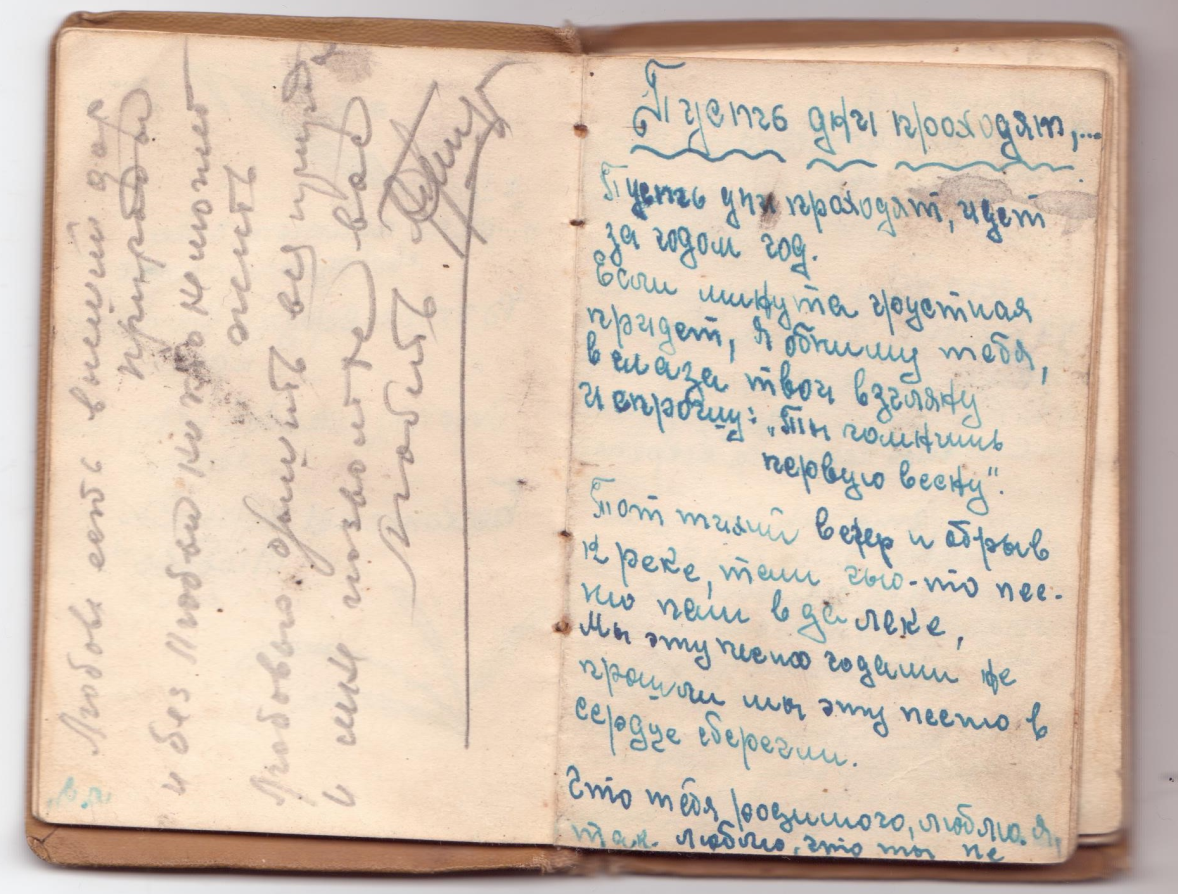 Любовь есть в нешей дар
природа
и без Любови никто не может
жить
Любовью дышить вся
и мне позвольте вас
Любить
Пусть дни проходят,...
Пусть дни проходят, идет
за годом год.
Если минута грустная
придет, Я обниму тебя,
в глаза твои взгляну
и спрошу: „Ты помнишь
первую весну".
Тот тихий вечер и обрыв
к реке, там чью-то пес-
ню пели в далеке,
Мы эту песню годами не
прошли мы эту песню в
сердце сберегли.
Что тебя родимого, люблю я,
так люблю, что ты не